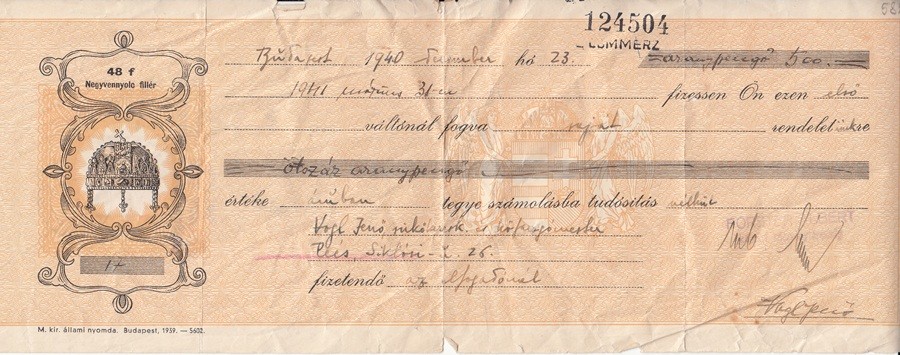 124504
COMMERZ
48 f
Negyvennyolc fillér
Budapest 1940 december hó 23. aranypengő 500.
1941 március 31-én fizessen Ön ezen első
váltónál fogva saját rendeletünkre
ötszáz aranypengő
értéke áruban tegye számolásba tudósítás nélkül
Vogl Jenő sirkőrak. és kőfaragómester
Pécs Siklósi-ú. 26.
fizetendő az elfogadónál
Vogl Jenő
M. kir. állami nyomda. Budapest, 1939. — 5602.